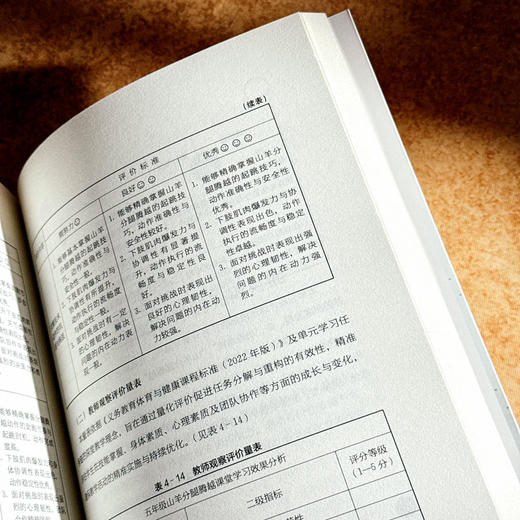 （续表）
评价标准
需努力☺
良好☺☺
优秀☺☺☺
1. 能够基本掌握山羊
分腿腾越的起跳技
巧，动作准确性与
安全性一般。
2. 下肢肌肉爆发力与
协调性有所提升，
动作执行的流畅度
与稳定性一般。
3. 面对挑战时有一定
的心理韧性，解决
问题的内在动力表
现一般。
1. 能够精确掌握山羊
分腿腾越的起跳技
巧，动作准确性与
安全性较好。
2. 下肢肌肉爆发力与
协调性有显著提
升，动作执行的流
畅度与稳定性良
好。
3. 面对挑战时表现出
良好的心理韧性，
解决问题的内在动
力较强。
1. 能够精确掌握山羊分
腿腾越的起跳技巧，
动作准确性与安全性
优秀。
2. 下肢肌肉爆发力与协
调性表现出色，动作
执行的流畅度与稳定
性卓越。
3. 面对挑战时表现出强
烈的心理韧性，解决
问题的内在动力强
烈。
（二）教师观察评价量表
本量表依据《义务教育体育与健康课程标准（2022年版）》及单元学习任
教学理念，旨在通过量化评价促进任务分解与重构的有效性，精准
技能掌握、身体素质、心理素质及团队协作等方面的成长与变化，
的精准实施与持续优化。（见表4-14）
表4-14 教师观察评价量表
五年级山羊分腿腾越课堂学习效果分析
二级指标
评分等级
（1—5分）